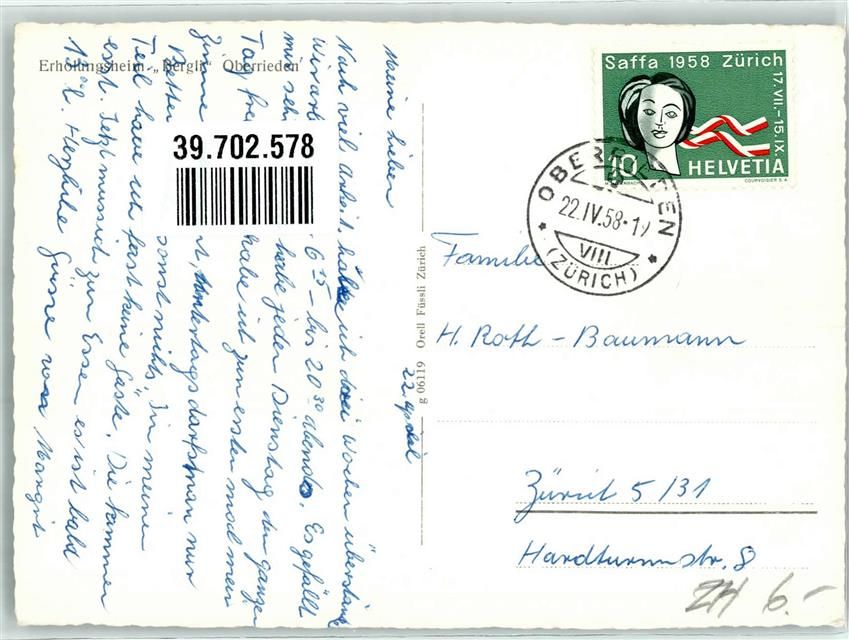 Erholungsheim „Bergli" Oberrieden
22. April
Meine Lieben
Nach viel Arbeit, habe ich drei Wochen überstanden
Wir arb 6 15 – bis 20 30 abends. Es gefällt
mir seh habe jeden Dienstag den ganzen
Tag fre habe ich zum ersten mal mein
Zimme t, Untertags darf man nur
Better sonst nichts. In meinem
Teil habe ich fast keine Gäste. Die kommen
erst. Jetzt muss ich zum Essen es ist bald
Herzliche Grüsse von Margrit
39.702.578
g 06119 Orell Füssli Zürich
Saffa 1958 Zürich
17.VII.–15.IX.
10
HELVETIA
COURVOISIER S.A.
OBERRIEDEN
22.IV.58-19
VIII
(ZÜRICH)
Familie
H. Roth-Baumann
Zürich 5/31
Hardturmstr. 8
ZH 6.-